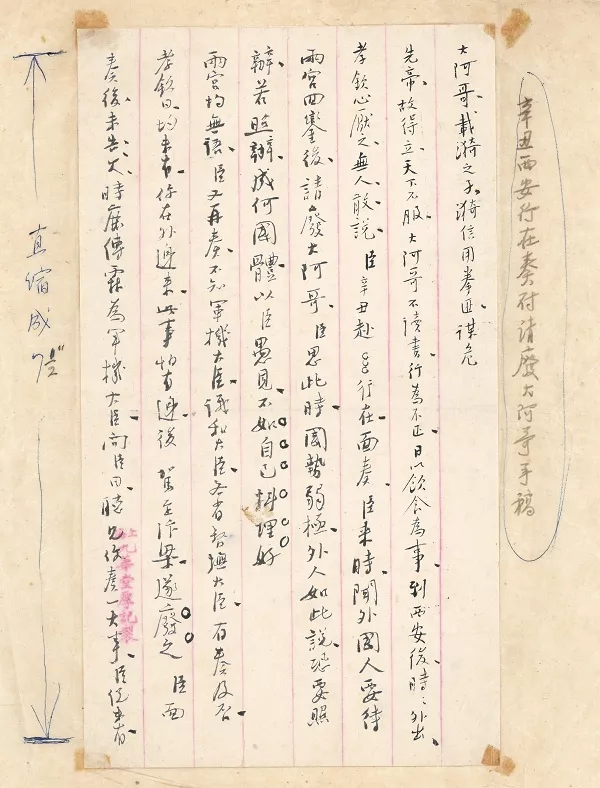 辛丑西安行在奏对请废大阿哥手稿
大阿哥、載漪之子、漪信用拳匪謀危
先帝、故得立、天下不服、大阿哥不讀書、行為不正、日以飲食為事、到西安後、時、外出、
孝欽心厭之、無人敢說 臣辛丑赴 行在面奏、臣來時、聞外國人要待
兩宮回鑾後、請廢大阿哥、臣思此時國勢弱極、外人如此說、恐要照
辦、若照辦、成何國體、以臣愚見、不如自己料理好
兩宮均無語、臣又再奏、不知軍機大臣、議和大臣、各省督撫大臣、有奏及否
孝欽曰、均未有、你在外邊來、此事怕有、邊後 駕至汴梁、遂廢之 臣面
奏後、未告人、時鹿傳霖為軍機大臣、向臣曰、聽見你奏一大事、臣從未有
九華堂厚記製
直缩成